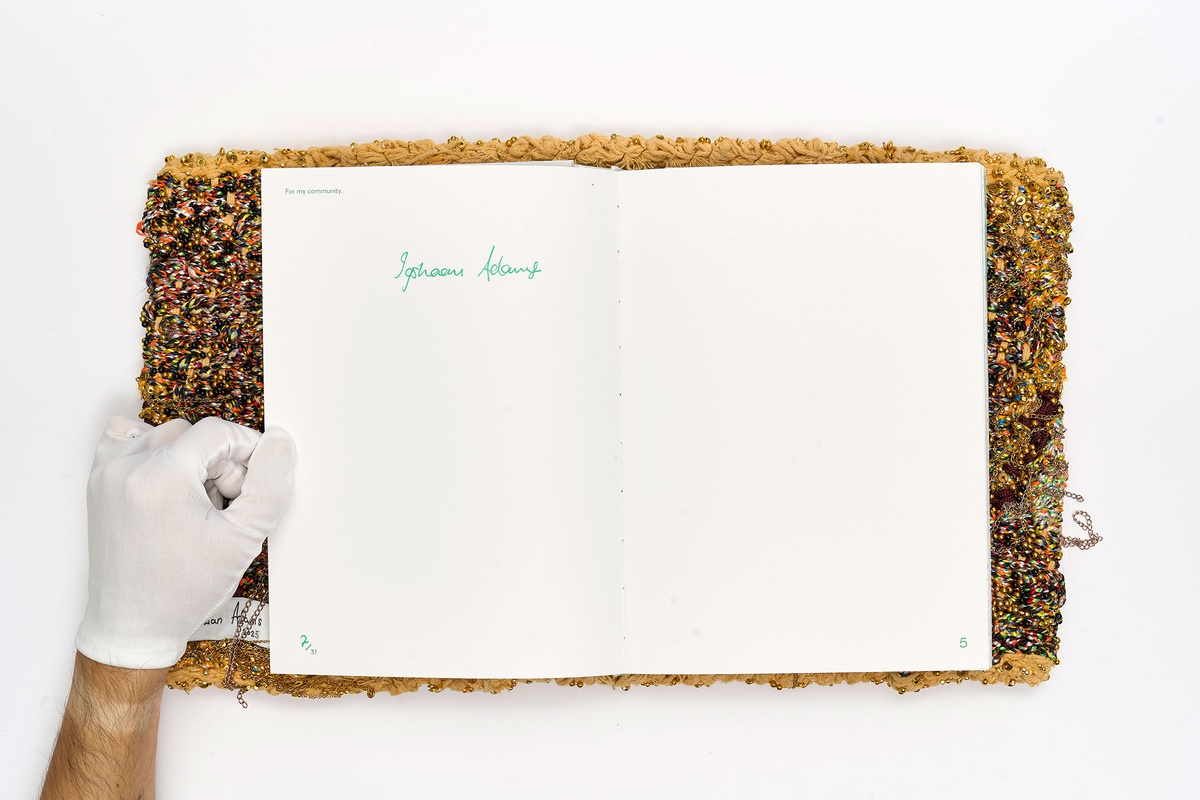 For my community.
Igshaan Adams
2/31
5
Adams
2025